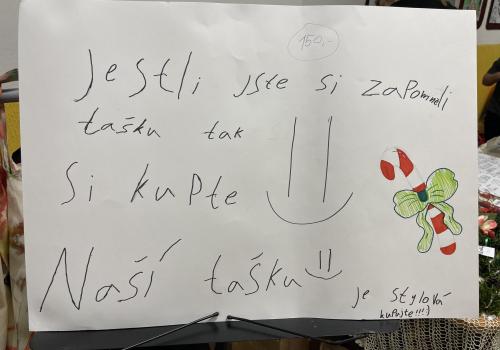 150,-
Jestli jste si zapomněli
tašku tak
Si kupte
Naší tašku
je stylová
kupujte!!! :)